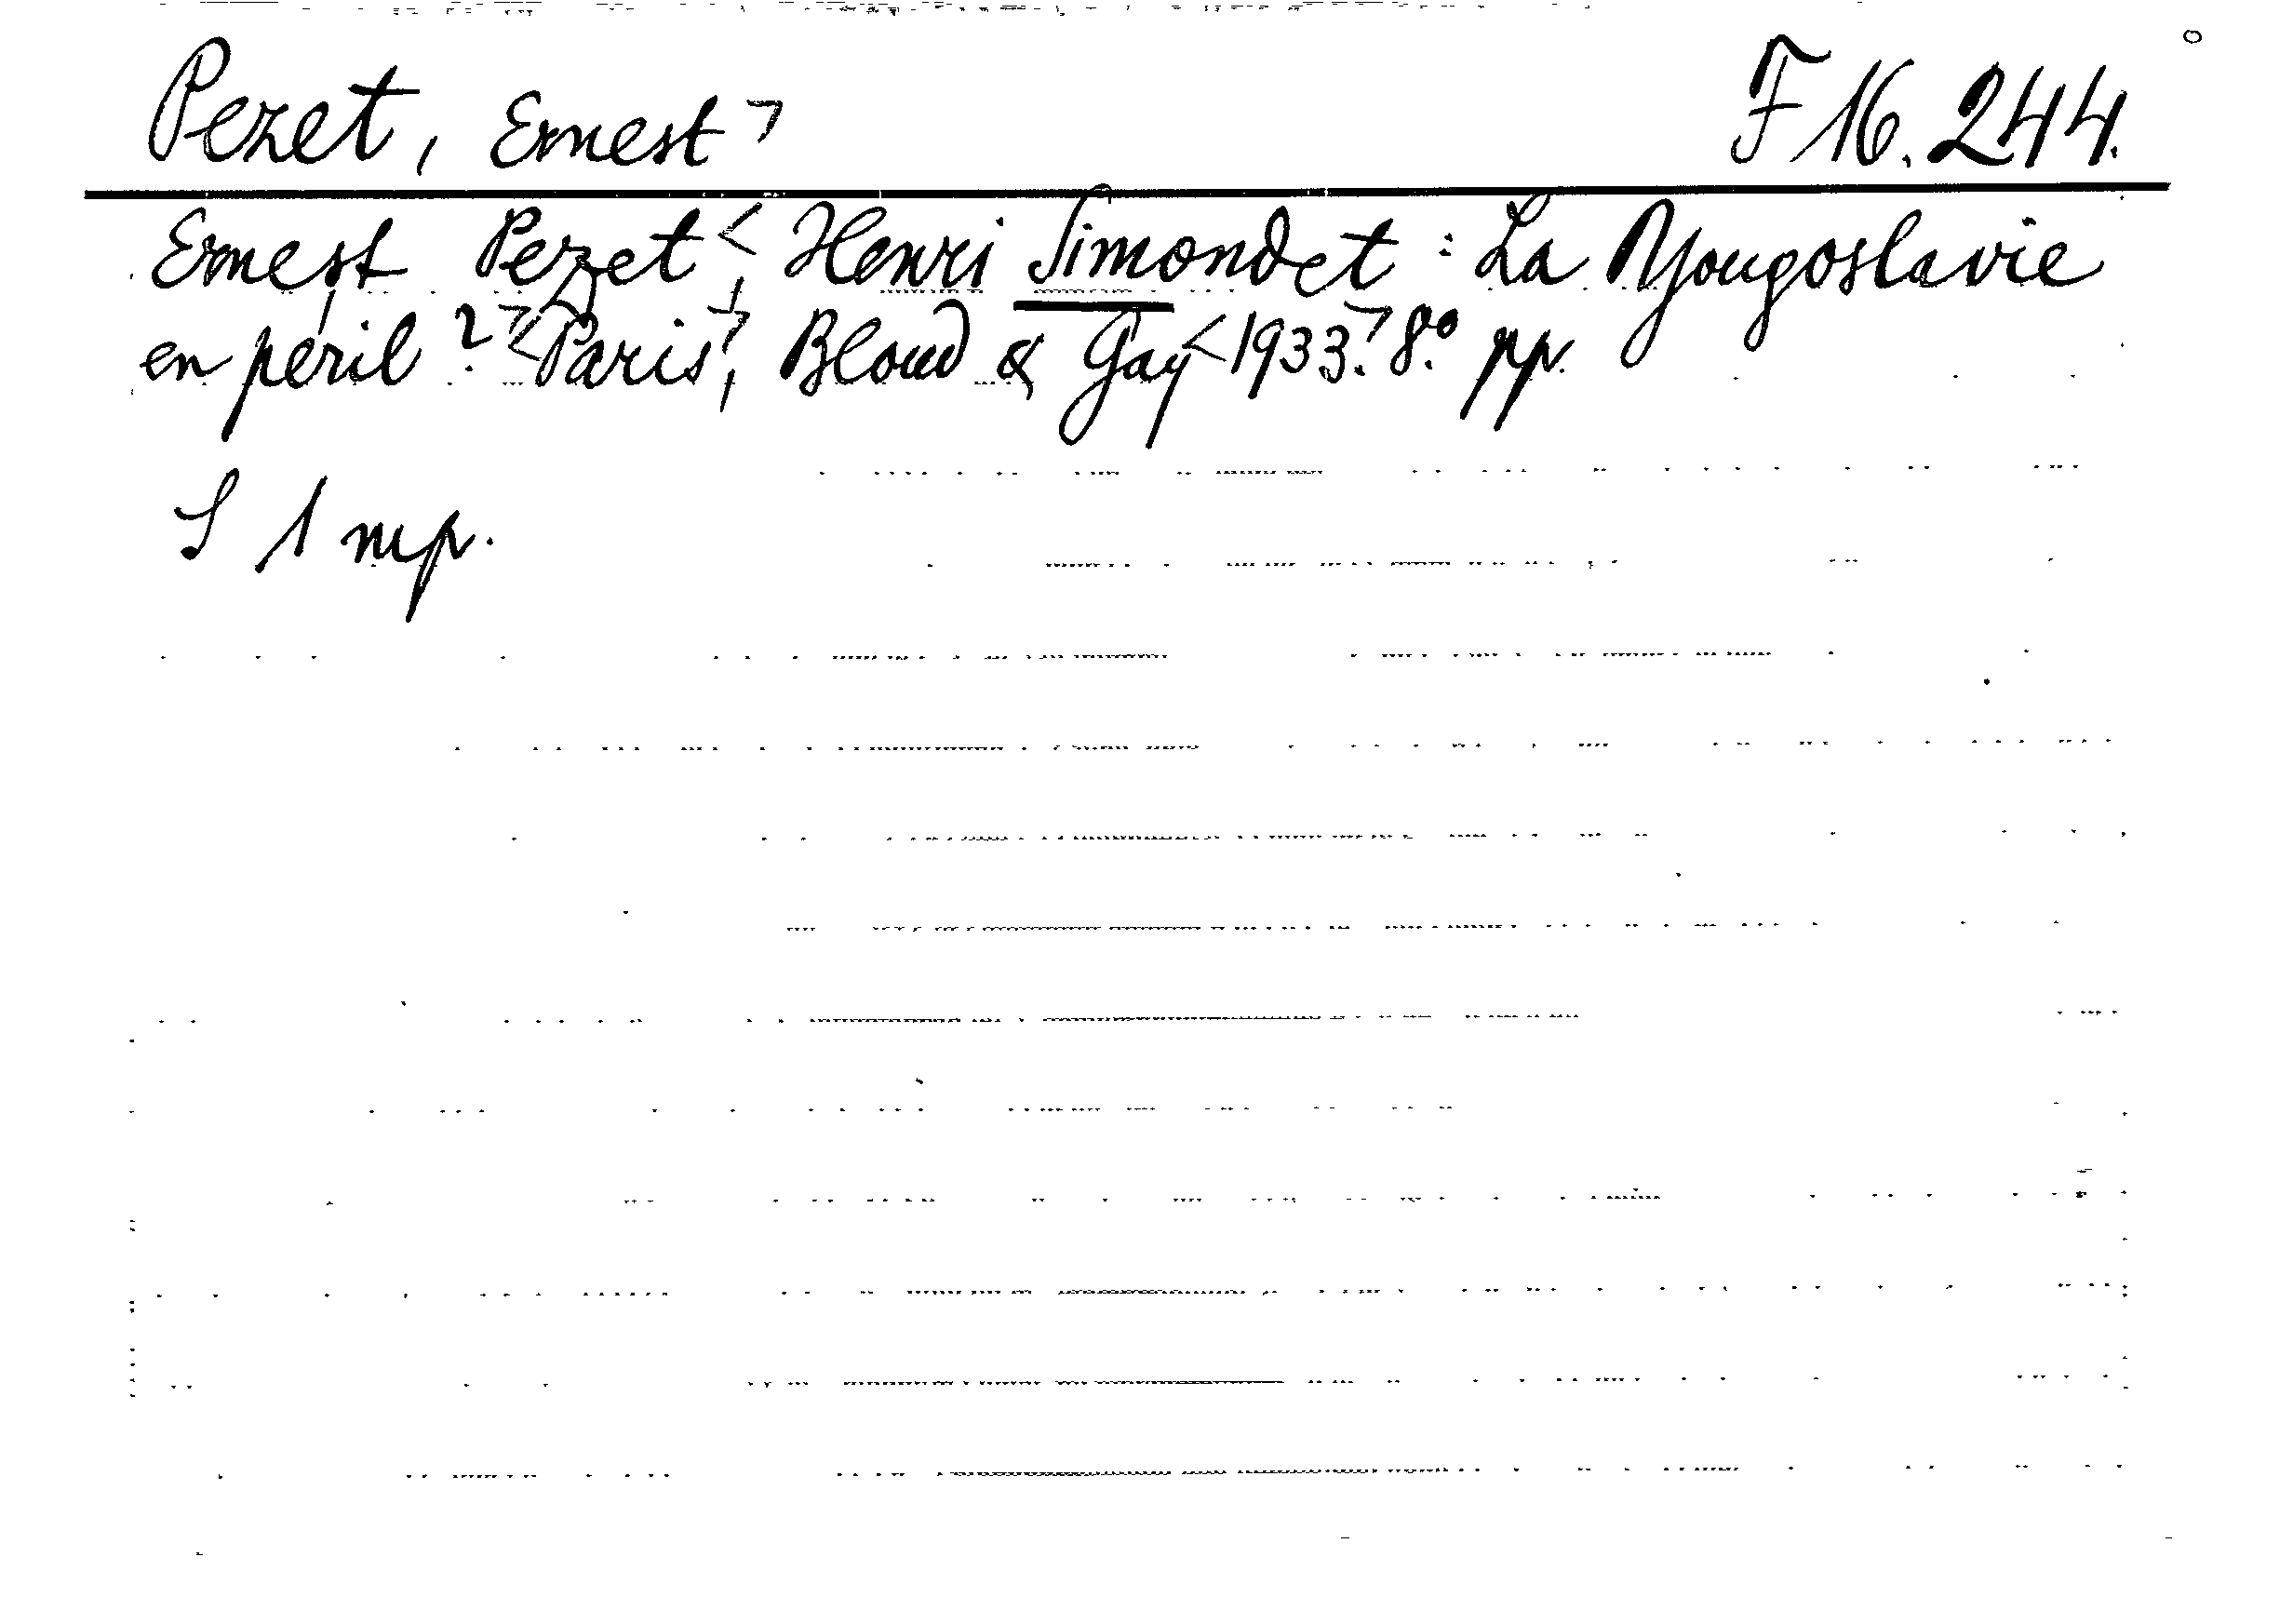 Pezet, Ernest
F 16.244.
Ernest Pezet, Henri Simondet: La Yougoslavie
en péril? Paris, Bloud & Gay 1933. 8.° pp.
S 1 mp.